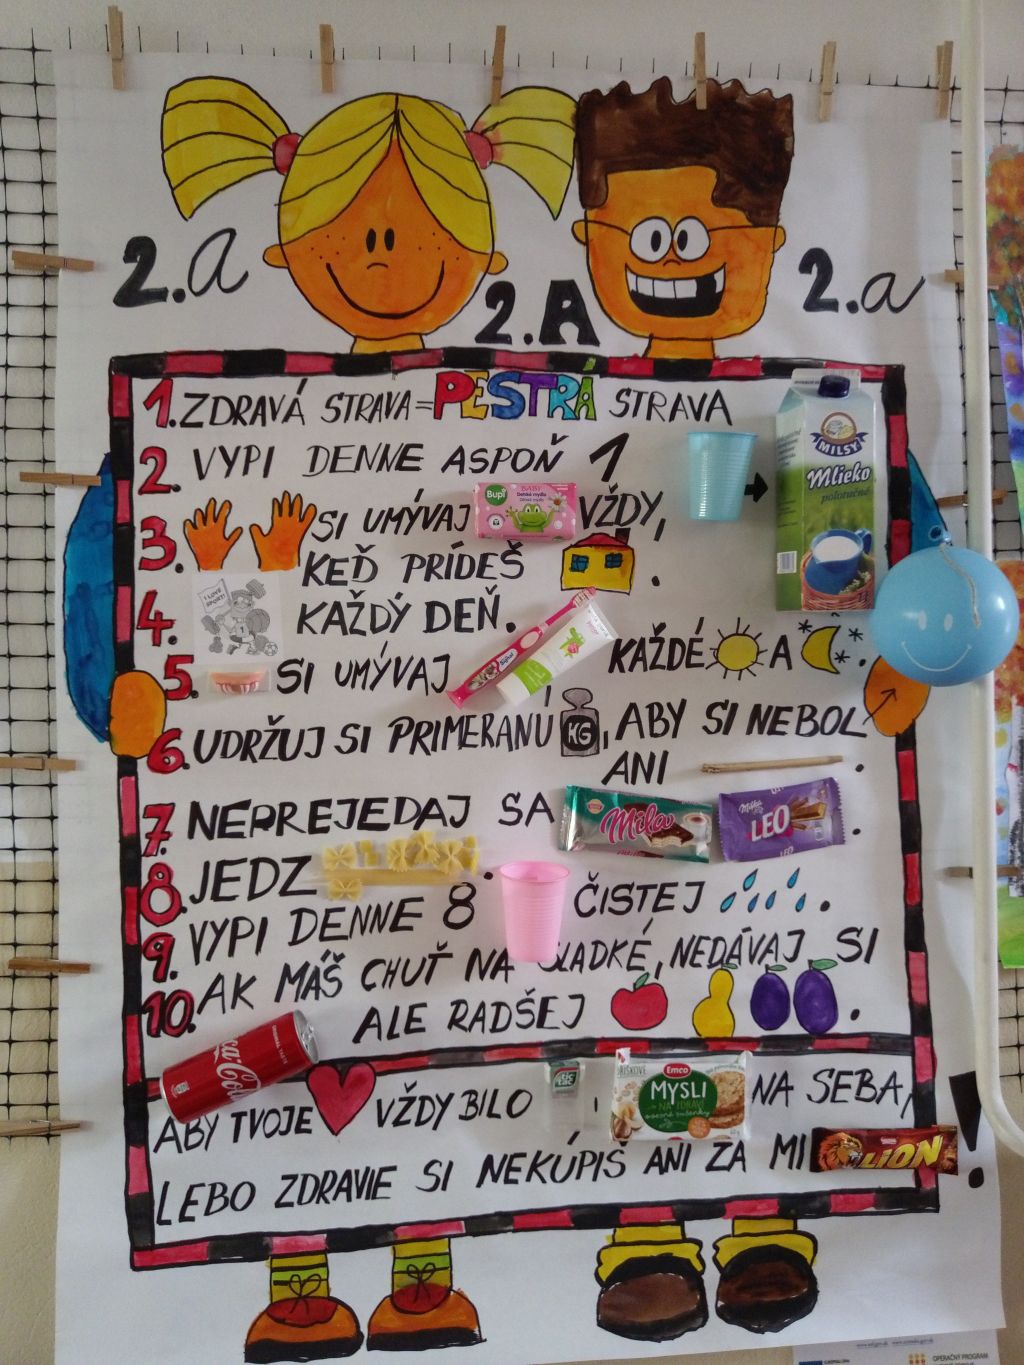 2.a
2.A
2.a
1. ZDRAVÁ STRAVA = PESTRÁ STRAVA
2. VYPI DENNE ASPOŇ 1
MILSY
Mlieko
polotučné
3. SI UMÝVAJ
Bupi
BABY
Detské mydlo
VŽDY,
KEĎ PRÍDEŠ .
4. KAŽDÝ DEŇ.
I LOVE SPORT!
5. SI UMÝVAJ KAŽDÉ A .
6. UDRŽUJ SI PRIMERANÚ KG, ABY SI NEBOL
ANI .
7. NEPREJEDAJ SA Mila Milka LEO .
8. JEDZ .
9. VYPI DENNE 8 ČISTEJ .
10. AK MÁŠ CHUŤ NA SLADKÉ, NEDÁVAJ SI
ALE RADŠEJ .
Coca-Cola
ABY TVOJE VŽDY BILO tic tac , Emco MYSLI NA ZDRAVI NA SEBA,
LEBO ZDRAVIE SI NEKÚPIŠ ANI ZA MI LION !
OPERAČNÝ PROGRAM